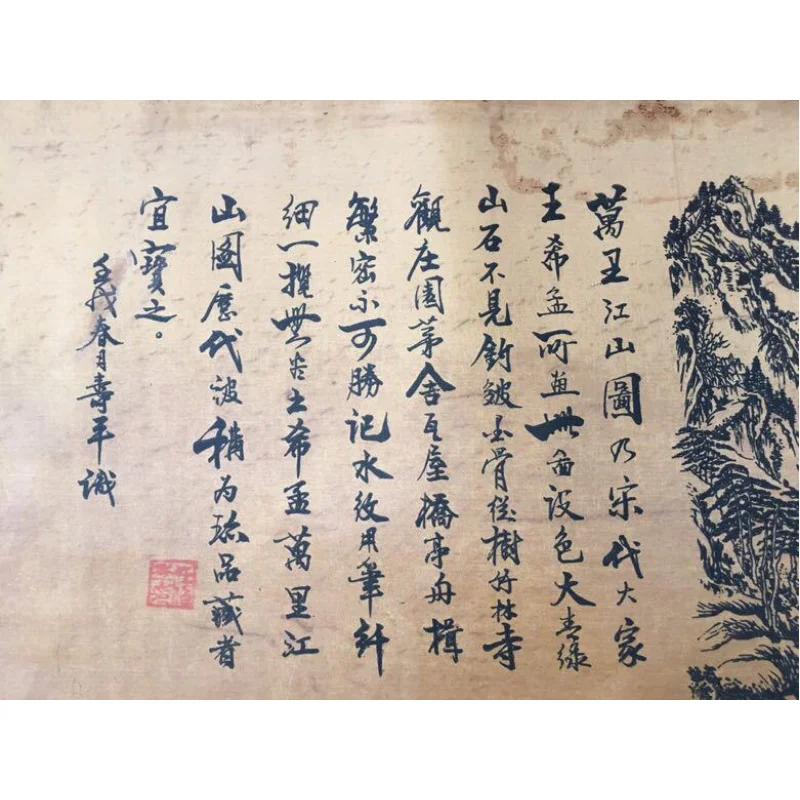 萬里江山圖乃宋代大家
王希孟所画此畵设色大青绿
山石不見鈎皴墨骨絰樹竹林寺
觀庄園茅舍瓦屋橋亭舟楫
繁密不可勝记水纹用筆纤
细一揽無片土希孟萬里江
山國歷代被稱为珍品藏者
宜寳之。
壬戌春月壽平識